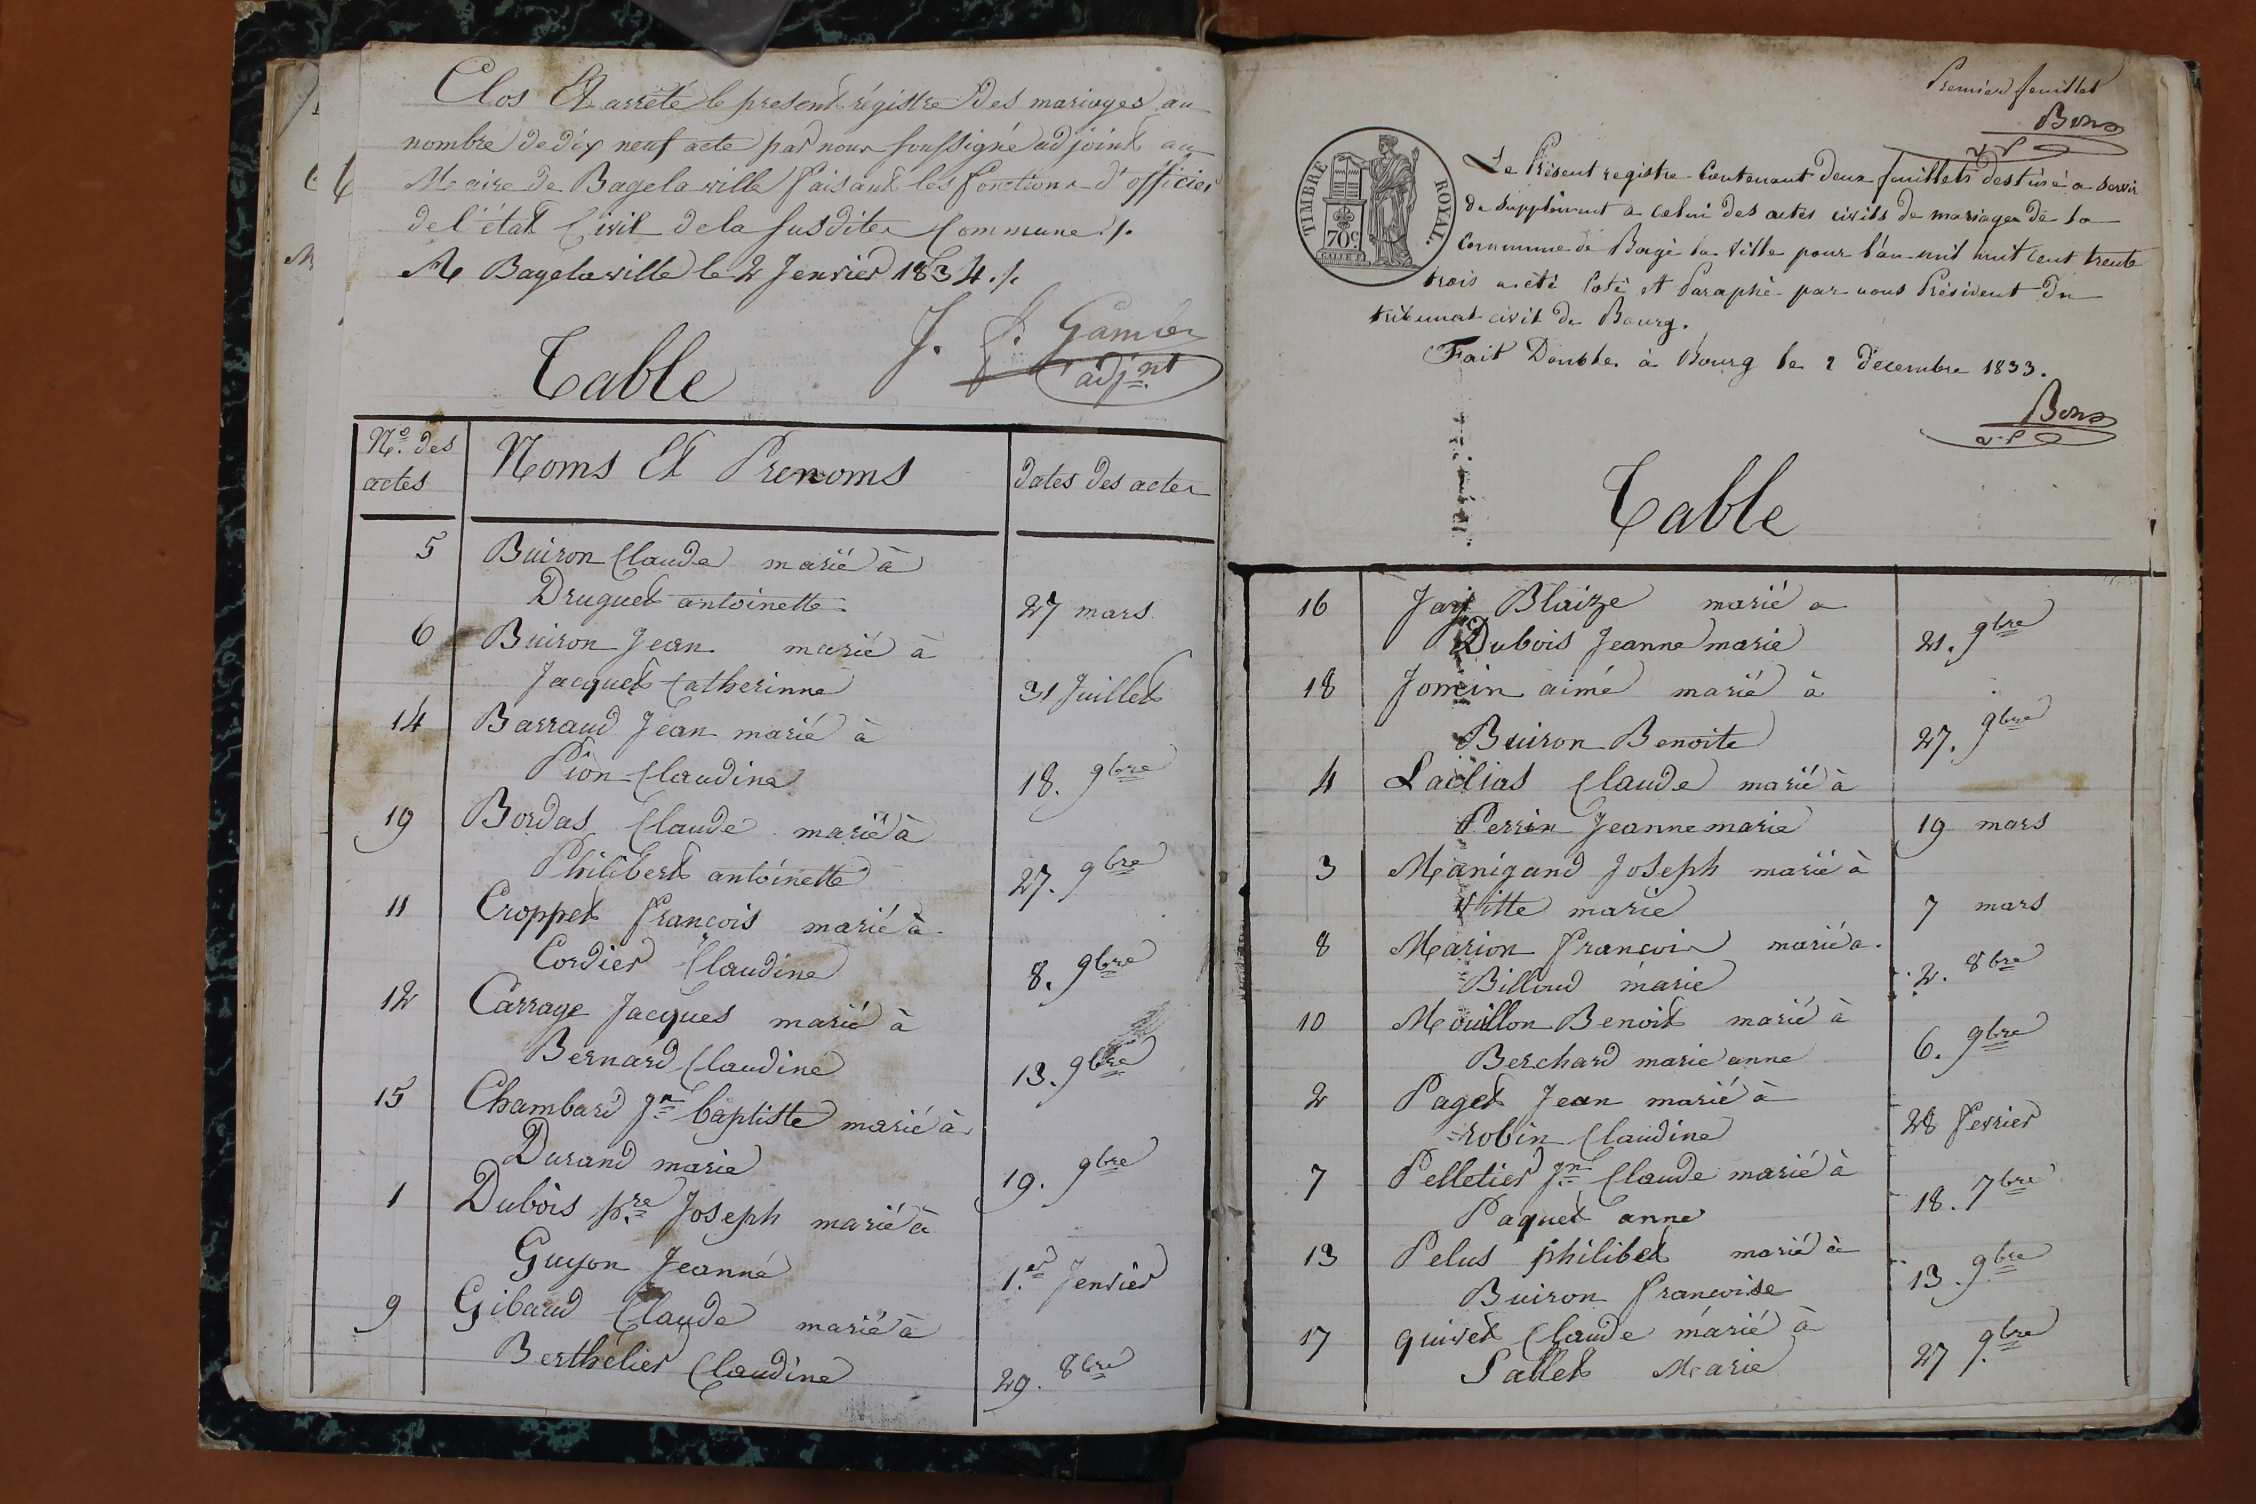 Clos Et arreté le present régistre des mariages au
nombre de dix neuf acte par nous soussigné adjoint au
Maire de Bagelaville faisant les fonctions d'officier
de l'état Civil de la susdite Commune ./.
A Bagelaville le 2 Jenvier 1834 ./.
J. J. Gambier
adj.nt
Table
N.o des actes
Noms Et Prenoms
dates des actes
5 Buiron Claude marié à
Druguet antoinette 27 mars
6 Buiron Jean marié à
Jacquet Catherinne 31 Juillet
14 Barraud Jean marié à
Pion Claudine 18. 9bre
19 Bordas Claude marié à
Philibert antoinette 27. 9bre
11 Croppet François marié à
Cordier Claudine 8. 9bre
12 Carrage Jacques marié à
Bernard Claudine 13. 9bre
15 Chambard Jn baptiste marié à
Durand marie 19. 9bre
1 Dubois p.re Joseph marié à
Guyon Jeanne 1.er Jenvier
9 Gibaud Claude marié à
Berthelier Claudine 29. 8bre
Premier feuillet
Bon
TIMBRE ROYAL.
70c
Le Présent registre Contenant deux feuillets destiné a servir
de supplément a celui des actes civils de mariages de la
Commune de Bagé la Ville pour l'an mil huit cent trente
trois a été Coté et Paraphé par nous Président du
tribunal civil de Bourg.
Fait Double à Bourg le 2 décembre 1833.
Bon
Table
16 Jay Blaize marié a
Dubois Jeanne marie 21. 9bre
18 Jomin aimé marié à
Buiron Benoite 27. 9bre
4 Laclias Claude marié à
Perrin Jeanne marie 19 mars
3 Manigand Joseph marié à
Vitte marie 7 mars
8 Marion françois marié a.
Billoud marie 2. 8bre
10 Mouillon Benoit marié à
Berchard marie anne 6. 9bre
2 Paget Jean marié à
robin Claudine 28 fevrier
7 Pelletier Jn Claude marié à
Paquet anne 18. 7bre
13 Pelus philibet marié à
Buiron françoise 13. 9bre
17 quivet Claude marié à
Pallet Marie 27 9.bre